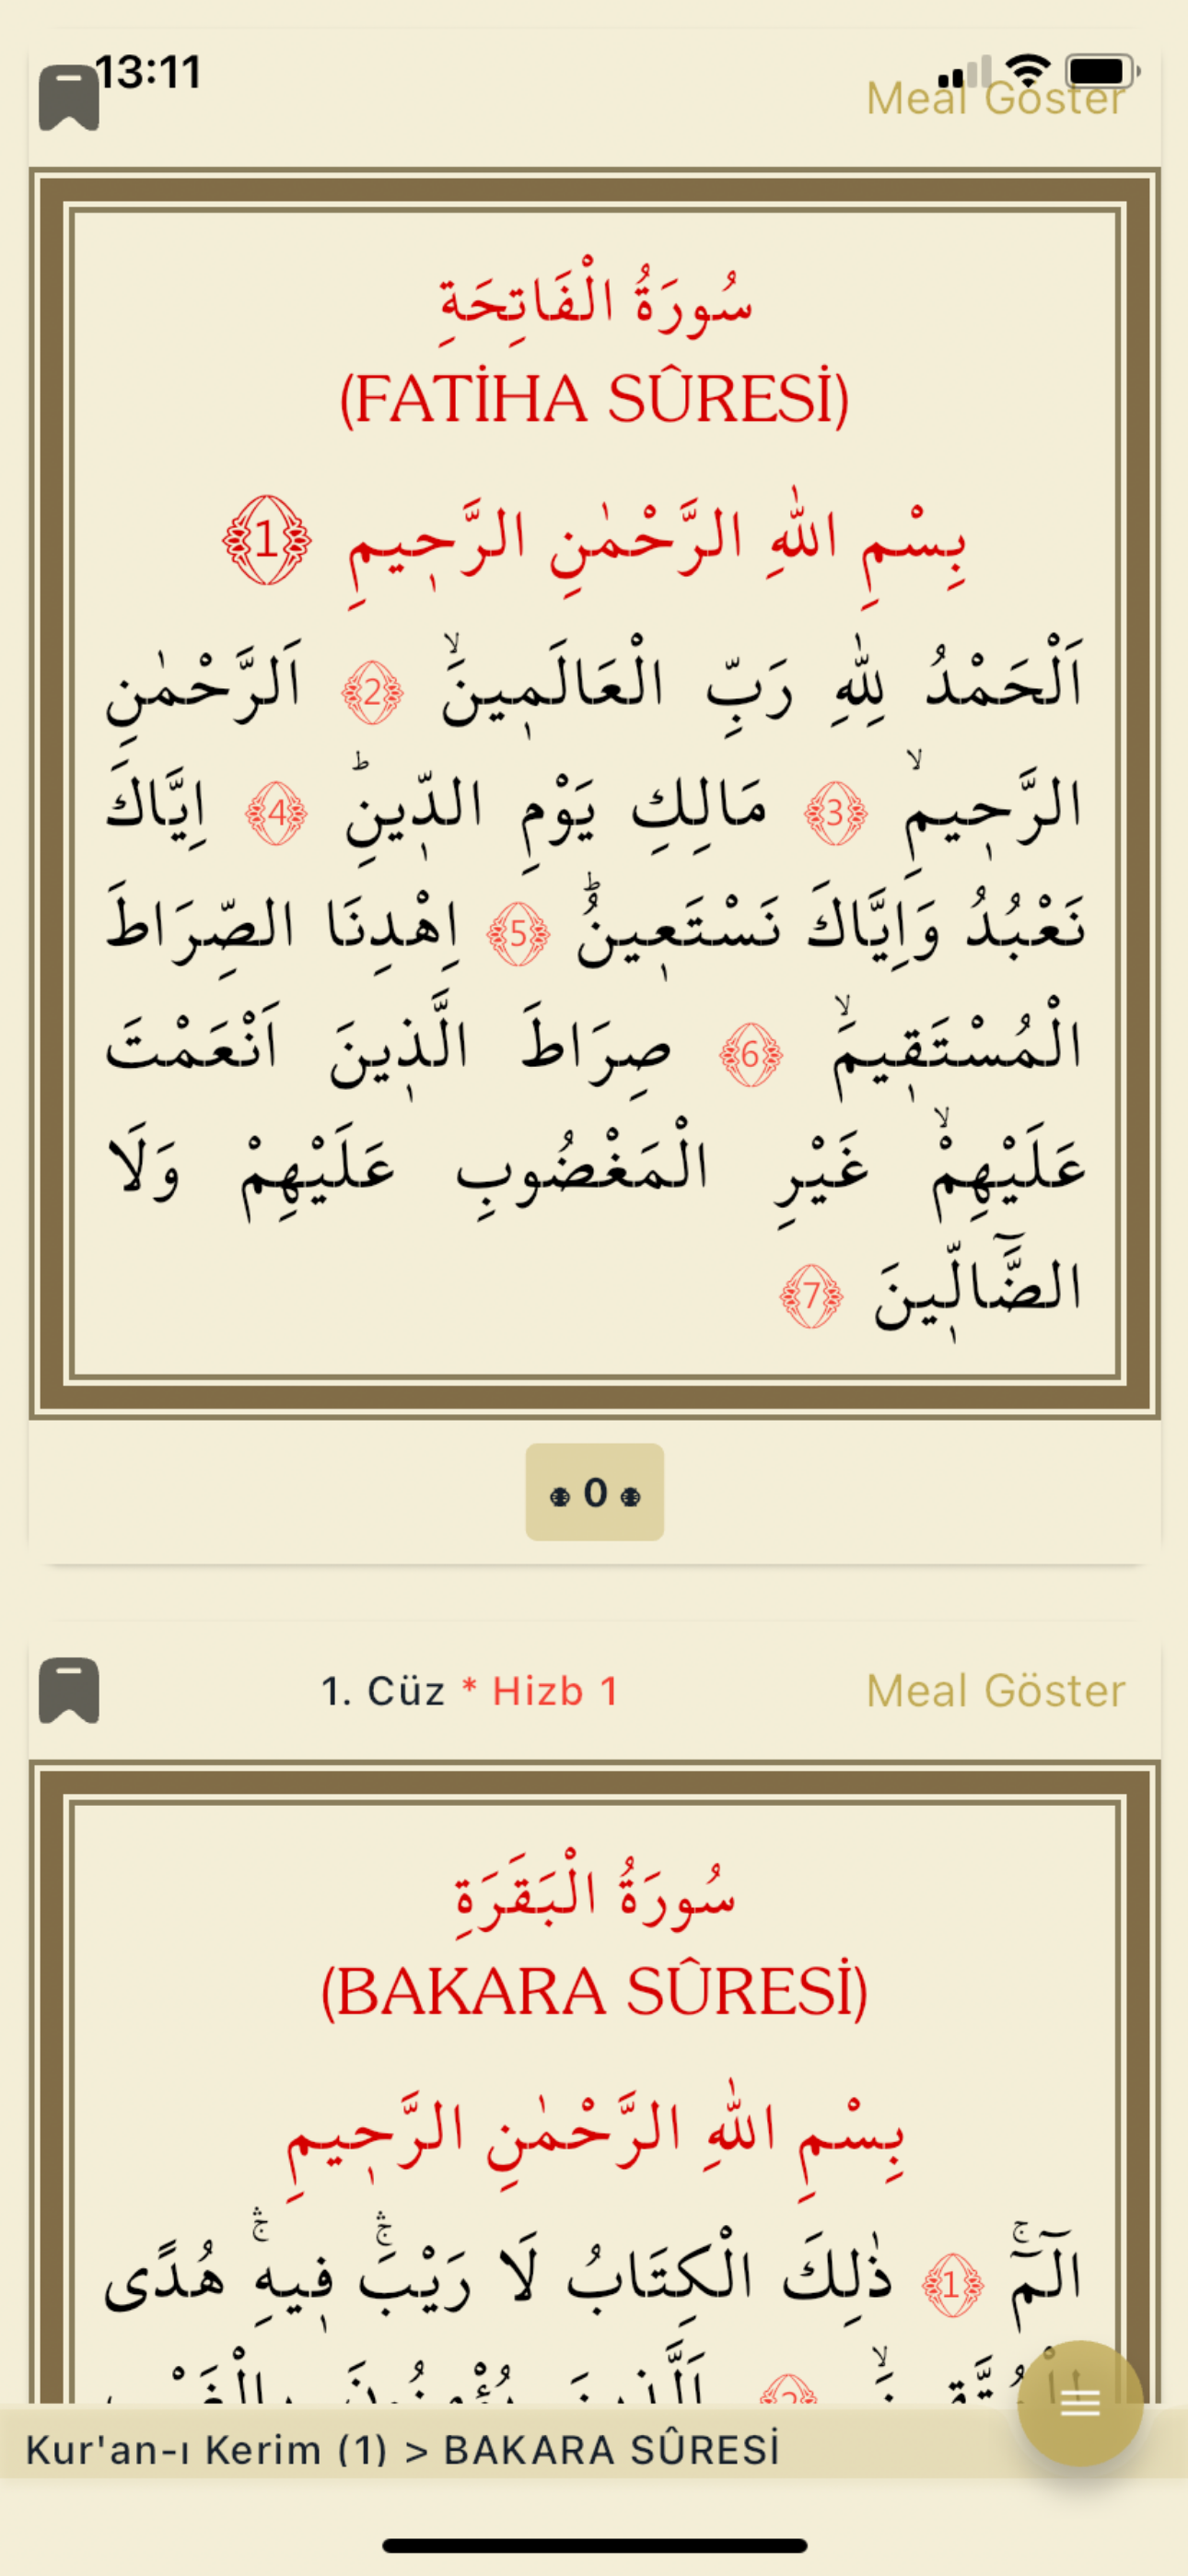 13:11
Meal Göster
سُورَةُ الْفَاتِحَةِ
(FATİHA SÛRESİ)
بِسْمِ اللّٰهِ الرَّحْمٰنِ الرَّح۪يمِ 1
اَلْحَمْدُ لِلّٰهِ رَبِّ الْعَالَم۪ينَۙ 2 اَلرَّحْمٰنِ
الرَّح۪يمِۙ 3 مَالِكِ يَوْمِ الدّ۪ينِۜ 4 اِيَّاكَ
نَعْبُدُ وَاِيَّاكَ نَسْتَع۪ينُۜ 5 اِهْدِنَا الصِّرَاطَ
الْمُسْتَق۪يمَۙ 6 صِرَاطَ الَّذ۪ينَ اَنْعَمْتَ
عَلَيْهِمْۙ غَيْرِ الْمَغْضُوبِ عَلَيْهِمْ وَلَا
الضَّٓالّ۪ينَ 7
0
1. Cüz * Hizb 1
Meal Göster
سُورَةُ الْبَقَرَةِ
(BAKARA SÛRESİ)
بِسْمِ اللّٰهِ الرَّحْمٰنِ الرَّح۪يمِ
الٓمٓۚ 1 ذٰلِكَ الْكِتَابُ لَا رَيْبَۚۛ ف۪يهِۚۛ هُدًى
Kur'an-ı Kerim (1) > BAKARA SÛRESİ